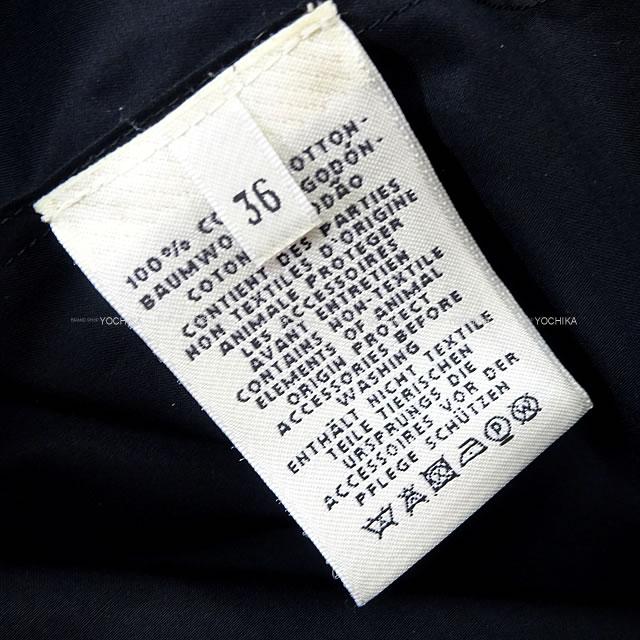 36
100% CO OTTON-
BAUMWO GODÓN-
COTON DÃO
CONTIENT DES PARTIES
NON TEXTILES D'ORIGINE
ANIMALE PROTEGER
LES ACCESSOIRES
AVANT ENTRETIEN
CONTAINS NON-TEXTILE
ELEMENTS OF ANIMAL
ORIGIN PROTECT
ACCESSORIES BEFORE
WASHING
ENTHÄLT NICHT TEXTILE
TEILE TIERISCHEN
URSPRUNGS DIE
ACCESSOIRES VOR DER
PFLEGE SCHÜTZEN
P
W
BRAND SHOP YOCHIKA
YOCHIKA